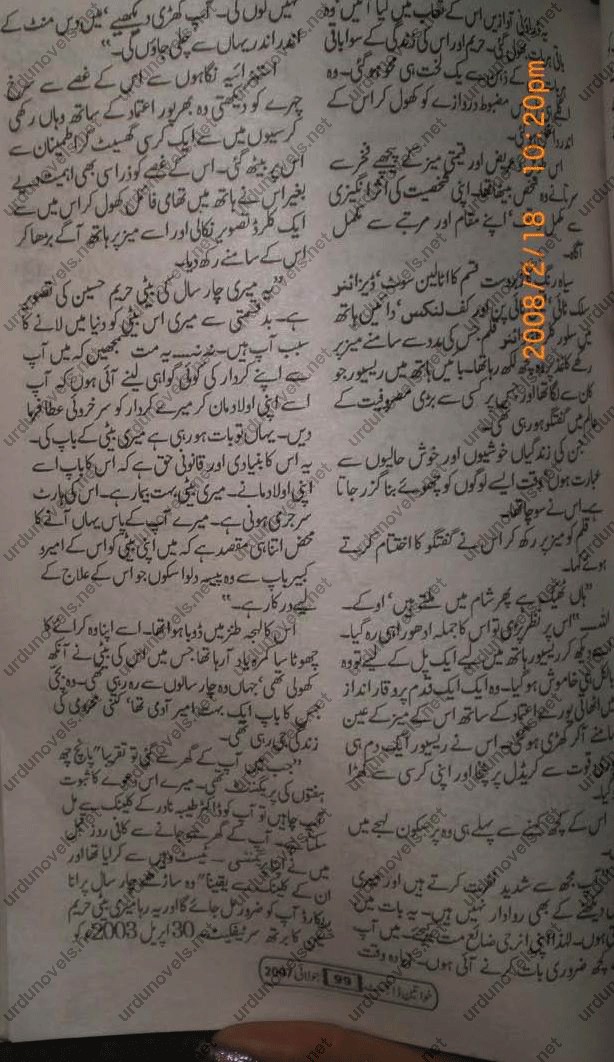 یہ دونوں آوازیں اس کے تعاقب میں لپکا آئیں وہ
گئی۔ حریم اور اس کی زندگی کے سوا باقی
کے ذہن سے یک لخت ہی محو ہو گئی۔ وہ
مضبوط دروازے کو کھول کر اس کے
اندر
اس عریض اور قیمتی میز کے پیچھے فخر سے
وہ شخص بیٹھا تھا۔ اپنی شخصیت کی اثر انگیزی
سے مکمل اپنے مقام اور مرتبے سے مکمل
آگاہ۔
سیاہ قسم کا اٹالین سوٹ، ڈیزائنر
سلک ٹائی پن اور کف لنکس، دائیں ہاتھ
میں قلم جس کی مدد سے سامنے میز پر
رکھے کاغذ کچھ لکھ رہا تھا۔ بائیں ہاتھ میں ریسیور جو
کان سے لگا تھا اور کسی سے بڑی مصروفیت کے
عالم میں گفتگو ہو رہی تھی۔
جن کی زندگیاں خوشیوں اور خوش حالیوں سے
عبارت ہوں وقت ایسے لوگوں کو چھوئے بنا گزر جاتا
ہے۔ اس نے سوچا تھا۔
قلم کو میز پر رکھ کر اس نے گفتگو کا اختتام کرتے
ہوئے کہا۔
"ہاں ٹھیک ہے پھر شام میں ملتے ہیں، اوکے۔
اس پر نظر پڑی تو اس کا جملہ ادھورا ہی رہ گیا۔
دیکھ کر ریسیور ہاتھ میں لیے ایک پل کے لیے تو وہ
بالکل ہی خاموش ہو گیا۔ وہ ایک ایک قدم پر وقار انداز
میں اٹھاتی پورے اعتماد کے ساتھ اس کے میز کے عین
سامنے آ کر کھڑی ہو گئی۔ اس نے ریسیور ایک دم ہی
قوت سے کریڈل پر پٹخا اور اپنی کرسی سے کھڑا
گیا۔
اس کے کچھ کہنے سے پہلے ہی وہ پر سکون لہجے میں
آپ مجھ سے شدید نفرت کرتے ہیں اور میری
دیکھنے کے بھی روادار نہیں ہیں۔ یہ بات میں
ہوں۔ لہذا اپنی انرجی ضائع مت کیجئے۔ میں آپ
کچھ ضروری بات کرنے آئی ہوں۔ زیادہ وقت
نہیں لوں گی۔ آپ کھڑی دیکھیے، میں دس منٹ کے
اندر اندر یہاں سے چلی جاؤں گی۔"
استہزائیہ نگاہوں سے اس کے غصے سے سرخ
چہرے کو دیکھتی وہ بھرپور اعتماد کے ساتھ وہاں رکھی
کرسیوں میں سے ایک کرسی گھسیٹ کر اطمینان سے
اس پر بیٹھ گئی۔ اس کے غصے کو ذرا سی بھی اہمیت دیے
بغیر اس نے ہاتھ میں تھامی فائل کھول کر اس میں سے
ایک کلرڈ تصویر نکالی اور اسے میز پر ہاتھ آگے بڑھا کر
اس کے سامنے رکھ دیا۔
"یہ میری چار سال کی بیٹی حریم حسین کی تصویر
ہے۔ بد قسمتی سے میری اس بیٹی کو دنیا میں لانے کا
سبب آپ ہیں۔ نہ نہ... یہ مت سمجھیں کہ میں آپ
سے اپنے کردار کی کوئی گواہی لینے آئی ہوں کہ آپ
اسے اپنی اولاد مان کر میرے کردار کو سرخروئی عطا فرما
دیں۔ یہاں تو بات ہو رہی ہے میری بیٹی کے باپ کی۔
یہ اس کا بنیادی اور قانونی حق ہے کہ اس کا باپ اسے
اپنی اولاد مانے۔ میری بیٹی بہت بیمار ہے۔ اس کی ہارٹ
سرجری ہونی ہے۔ میرے آپ کے پاس یہاں آنے کا
محض اتنا ہی مقصد ہے کہ میں اپنی بیٹی کو اس کے امیر و
کبیر باپ سے وہ پیسہ دلوا سکوں جو اس کے علاج کے
لیے درکار ہے۔"
اس کا لہجہ طنز میں ڈوبا ہوا تھا۔ اسے اپنا وہ کرائے کا
چھوٹا سا کمرہ یاد آ رہا تھا جس میں اس کی بیٹی نے آنکھ
کھولی تھی، جہاں وہ چار سالوں سے رہ رہی تھی۔ وہ بچی
جس کا باپ ایک بہت امیر آدمی تھا، کتنی محرومی کی
زندگی جی رہی تھی۔
"جب میں آپ کے گھر سے گئی تو تقریباً پانچ چھ
ہفتوں کی پریگننٹ تھی۔ میرے اس دعوے کا ثبوت
چاہیں تو آپ کو ڈاکٹر طیبہ نادر کے کلینک سے مل
سکتا آپ کے گھر سے جانے سے کافی روز قبل
میں نے اپنا ٹیسٹ وہیں سے کرایا تھا اور
ان کے کلینک سے یقیناً وہ ساڑھے چار سال پرانا
ریکارڈ آپ کو ضرور مل جائے گا اور یہ رہا میری بیٹی حریم
حسین کا برتھ سرٹیفکیٹ 30 اپریل 2003ء کو
خواتین ڈائجسٹ 99 جولائی 2007
2008/2/18 10:20pm
urdunovels.net